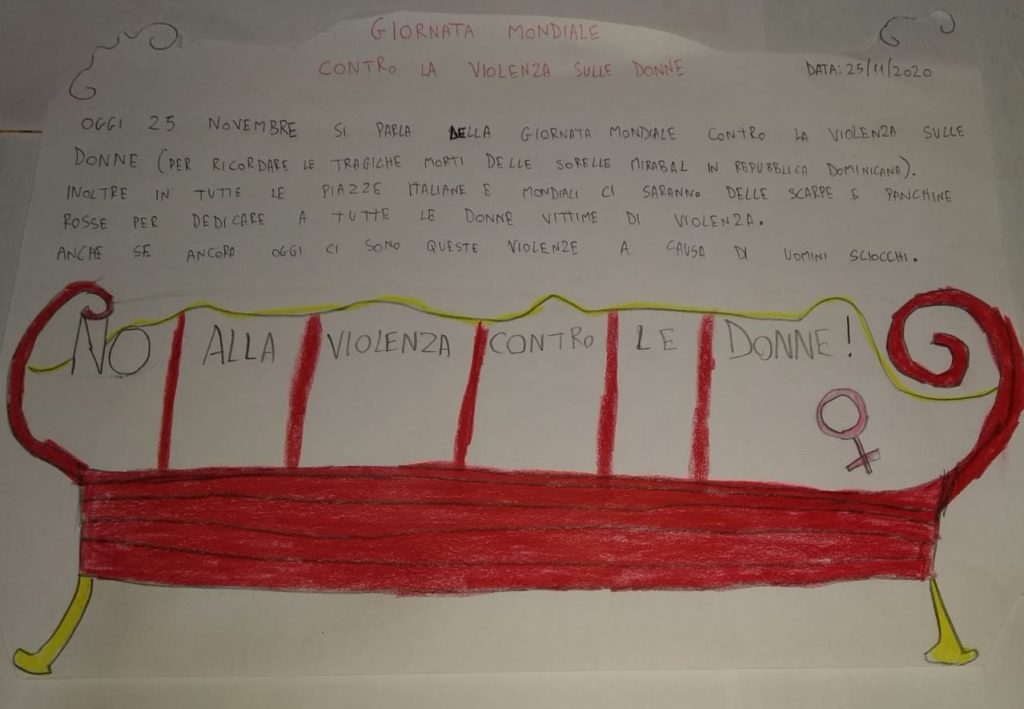 GIORNATA MONDIALE
CONTRO LA VIOLENZA SULLE DONNE
DATA: 25/11/2020
OGGI 25 NOVEMBRE SI PARLA DELLA GIORNATA MONDIALE CONTRO LA VIOLENZA SULLE
DONNE (PER RICORDARE LE TRAGICHE MORTI DELLE SORELLE MIRABAL IN REPUBBLICA DOMINICANA).
INOLTRE IN TUTTE LE PIAZZE ITALIANE E MONDIALI CI SARANNO DELLE SCARPE E PANCHINE
ROSSE PER DEDICARE A TUTTE LE DONNE VITTIME DI VIOLENZA.
ANCHE SE ANCORA OGGI CI SONO QUESTE VIOLENZE A CAUSA DI UOMINI SCIOCCHI.
NO ALLA VIOLENZA CONTRO LE DONNE!